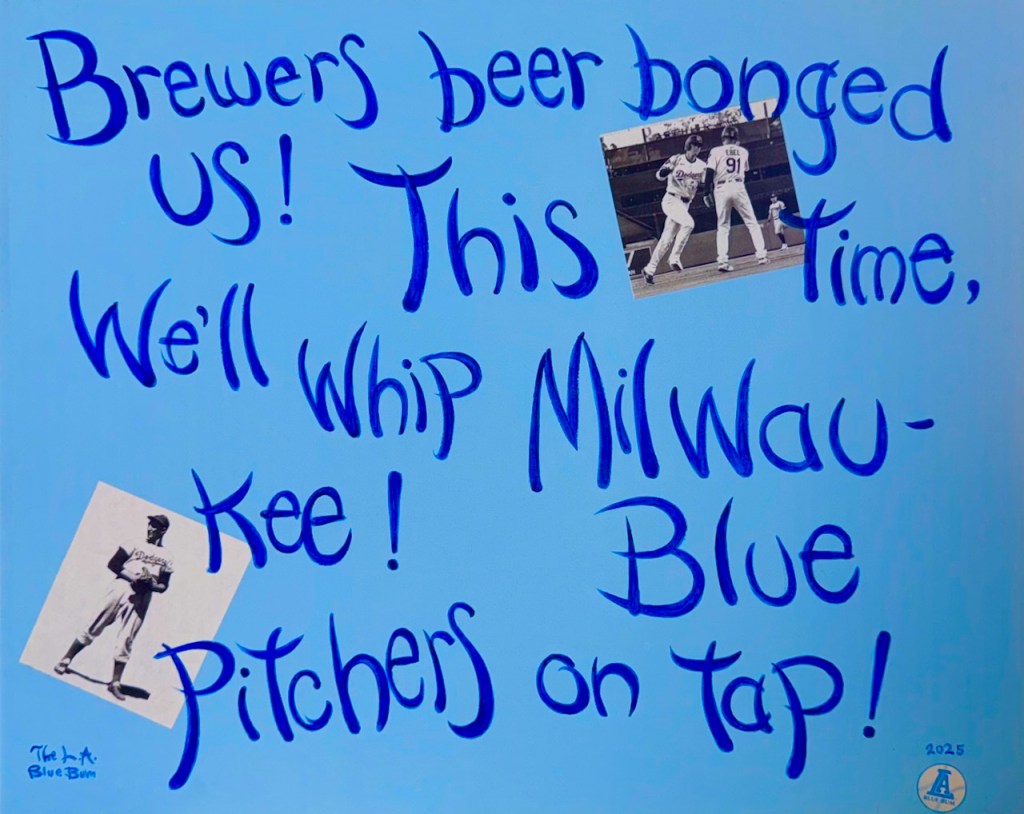 Brewers beer bonged
us! This Time,
We'll Whip Milwau-
kee! Blue
Pitchers on Tap!
EBEL
91
Dodgers
Dodgers
The L.A.
Blue Bum
2025
A
BLUE BUM